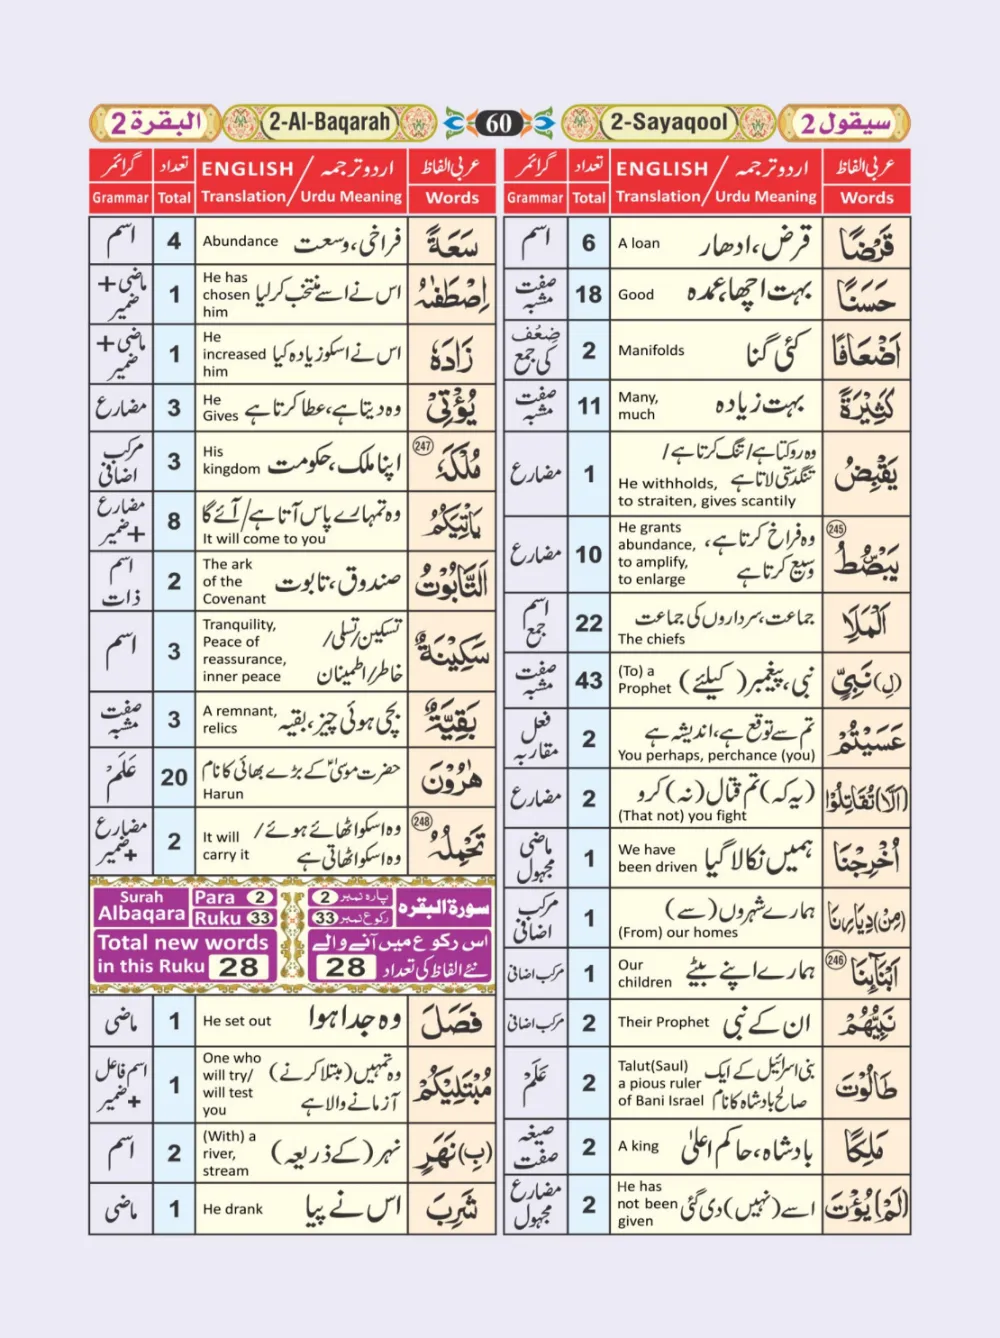 سيقول 2
2-Sayaqool
60
2-Al-Baqarah
البقرة 2
عربی الفاظ
اردو ترجمہ / ENGLISH
تعداد
گرائمر
Words
Translation / Urdu Meaning
Total
Grammar
قَرْضًا
قرض، ادھار
A loan
6
اسم
حَسَنًا
بہت اچھا، عمدہ
Good
18
صفت مشبہ
اَضْعَافًا
کئی گنا
Manifolds
2
ضِعْف کی جمع
كَثِيْرَةً
بہت زیادہ
Many,
much
11
صفت مشبہ
يَقْبِضُ
وہ روکتا ہے / تنگ کرتا ہے /
تنگدستی لاتا ہے
He withholds,
to straiten, gives scantily
1
مضارع
245
يَبْصُۜطُ
وہ فراخ کرتا ہے،
وسیع کرتا ہے
He grants
abundance,
to amplify,
to enlarge
10
مضارع
اَلْمَلَاِ
جماعت، سرداروں کی جماعت
The chiefs
22
اسم جمع
(لِ) نَبِيٍّ
نبی، پیغمبر (کیلئے)
(To) a
Prophet
43
صفت مشبہ
عَسَيْتُمْ
تم سے توقع ہے، اندیشہ ہے
You perhaps, perchance (you)
2
فعل مقاربہ
(اَلَّا) تُقَاتِلُوْا
(یہ کہ) تم قتال (نہ) کرو
(That not) you fight
2
مضارع
اُخْرِجْنَا
ہمیں نکالا گیا
We have
been driven
1
ماضی مجہول
(مِنْ) دِيَارِنَا
ہمارے شہروں (سے)
(From) our homes
1
مرکب اضافی
246
اَبْنَآىِٕنَا
ہمارے اپنے بیٹے
Our
children
1
مرکب اضافی
نَبِيُّهُمْ
ان کے نبی
Their Prophet
2
مرکب اضافی
طَالُوْتَ
بنی اسرائیل کے ایک
صالح بادشاہ کا نام
Talut(Saul)
a pious ruler
of Bani Israel
2
عَلَمْ
مَلِكًا
بادشاہ، حاکم اعلیٰ
A king
2
صیغہ صفت
(لَمْ) يُؤْتَ
اسے (نہیں) دی گئی
He has
not been
given
2
مضارع مجہول
عربی الفاظ
اردو ترجمہ / ENGLISH
تعداد
گرائمر
Words
Translation / Urdu Meaning
Total
Grammar
سَعَةً
فراخی، وسعت
Abundance
4
اسم
اِصْطَفٰىهُ
اس نے اسے منتخب کر لیا
He has
chosen
him
1
ماضی + ضمیر
زَادَهٗ
اس نے اسکو زیادہ کیا
He
increased
him
1
ماضی + ضمیر
يُؤْتِيْ
وہ دیتا ہے، عطا کرتا ہے
He
Gives
3
مضارع
247
مُلْكَهٗ
اپنا ملک، حکومت
His
kingdom
3
مرکب اضافی
يَاْتِيَكُمُ
وہ تمہارے پاس آتا ہے / آئے گا
It will come to you
8
مضارع + ضمیر
اَلتَّابُوْتُ
صندوق، تابوت
The ark
of the
Covenant
2
اسم ذات
سَكِيْنَةٌ
تسکین / تسلی /
خاطر / اطمینان
Tranquility,
Peace of
reassurance,
inner peace
3
اسم
بَقِيَّةٌ
بچی ہوئی چیز، بقیہ
A remnant,
relics
3
صفت مشبہ
هٰرُوْنَ
حضرت موسیٰؑ کے بڑے بھائی کا نام
Harun
20
عَلَمْ
248
تَحْمِلُهُ
وہ اسکو اٹھائے ہوئے /
وہ اسکو اٹھاتی ہے
It will
carry it
2
مضارع + ضمیر
Surah
Albaqara
Para 2
Ruku 33
پارہ نمبر 2
رکوع نمبر 33
سورة البقرہ
Total new words
in this Ruku 28
اس رکوع میں آنے والے
نئے الفاظ کی تعداد 28
فَصَلَ
وہ جدا ہوا
He set out
1
ماضی
مُبْتَلِيْكُمْ
وہ تمہیں (مبتلا کرنے)
آزمانے والا ہے
One who
will try/
will test
you
1
اسم فاعل + ضمیر
(بِ) نَهَرٍ
نہر (کے ذریعہ)
(With) a
river,
stream
2
اسم
شَرِبَ
اس نے پیا
He drank
1
ماضی